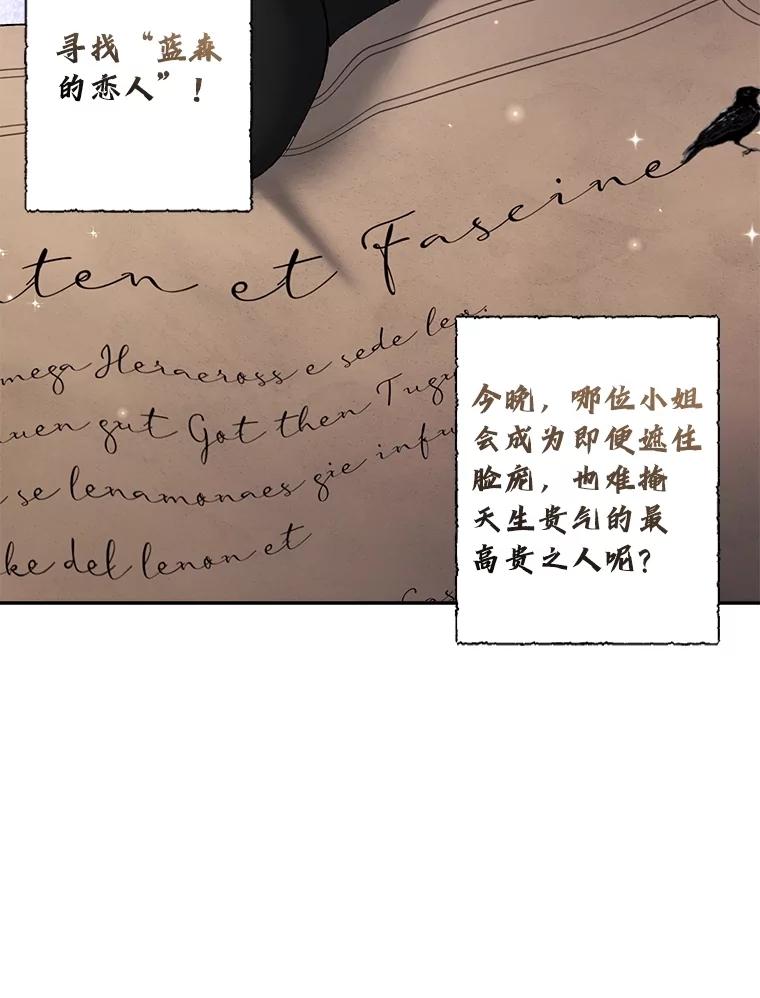 寻找“蓝森
的恋人”！
ten et Fascine
mega Heraeross e sede les.
uen gut Got then Tugu
se lenamonaes gie infu
ke del lenon et
今晚，哪位小姐
会成为即便遮住
脸庞，也难掩
天生贵气的最
高贵之人呢？